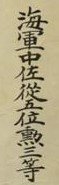 海軍中佐從五位勲三等